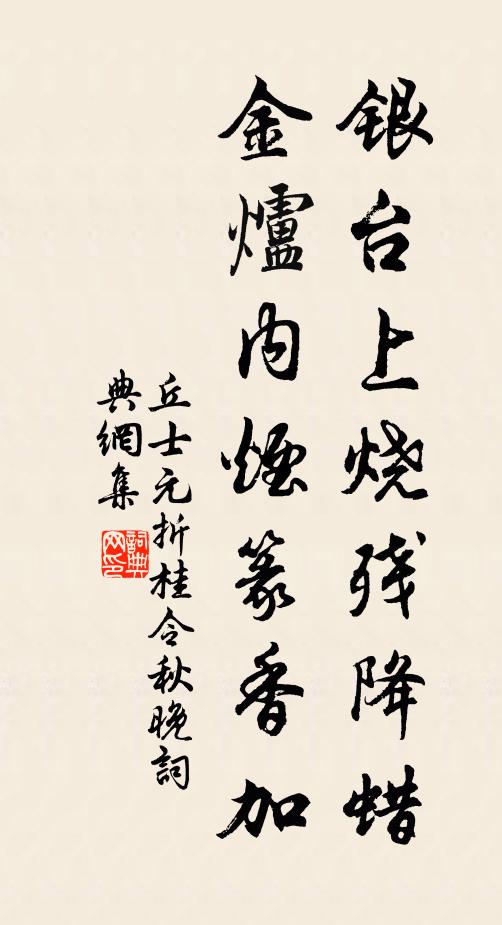 银台上烧残降蜡
金爐内烟篆香加
丘士元折桂令秋晚詞
典網集
詞典网印